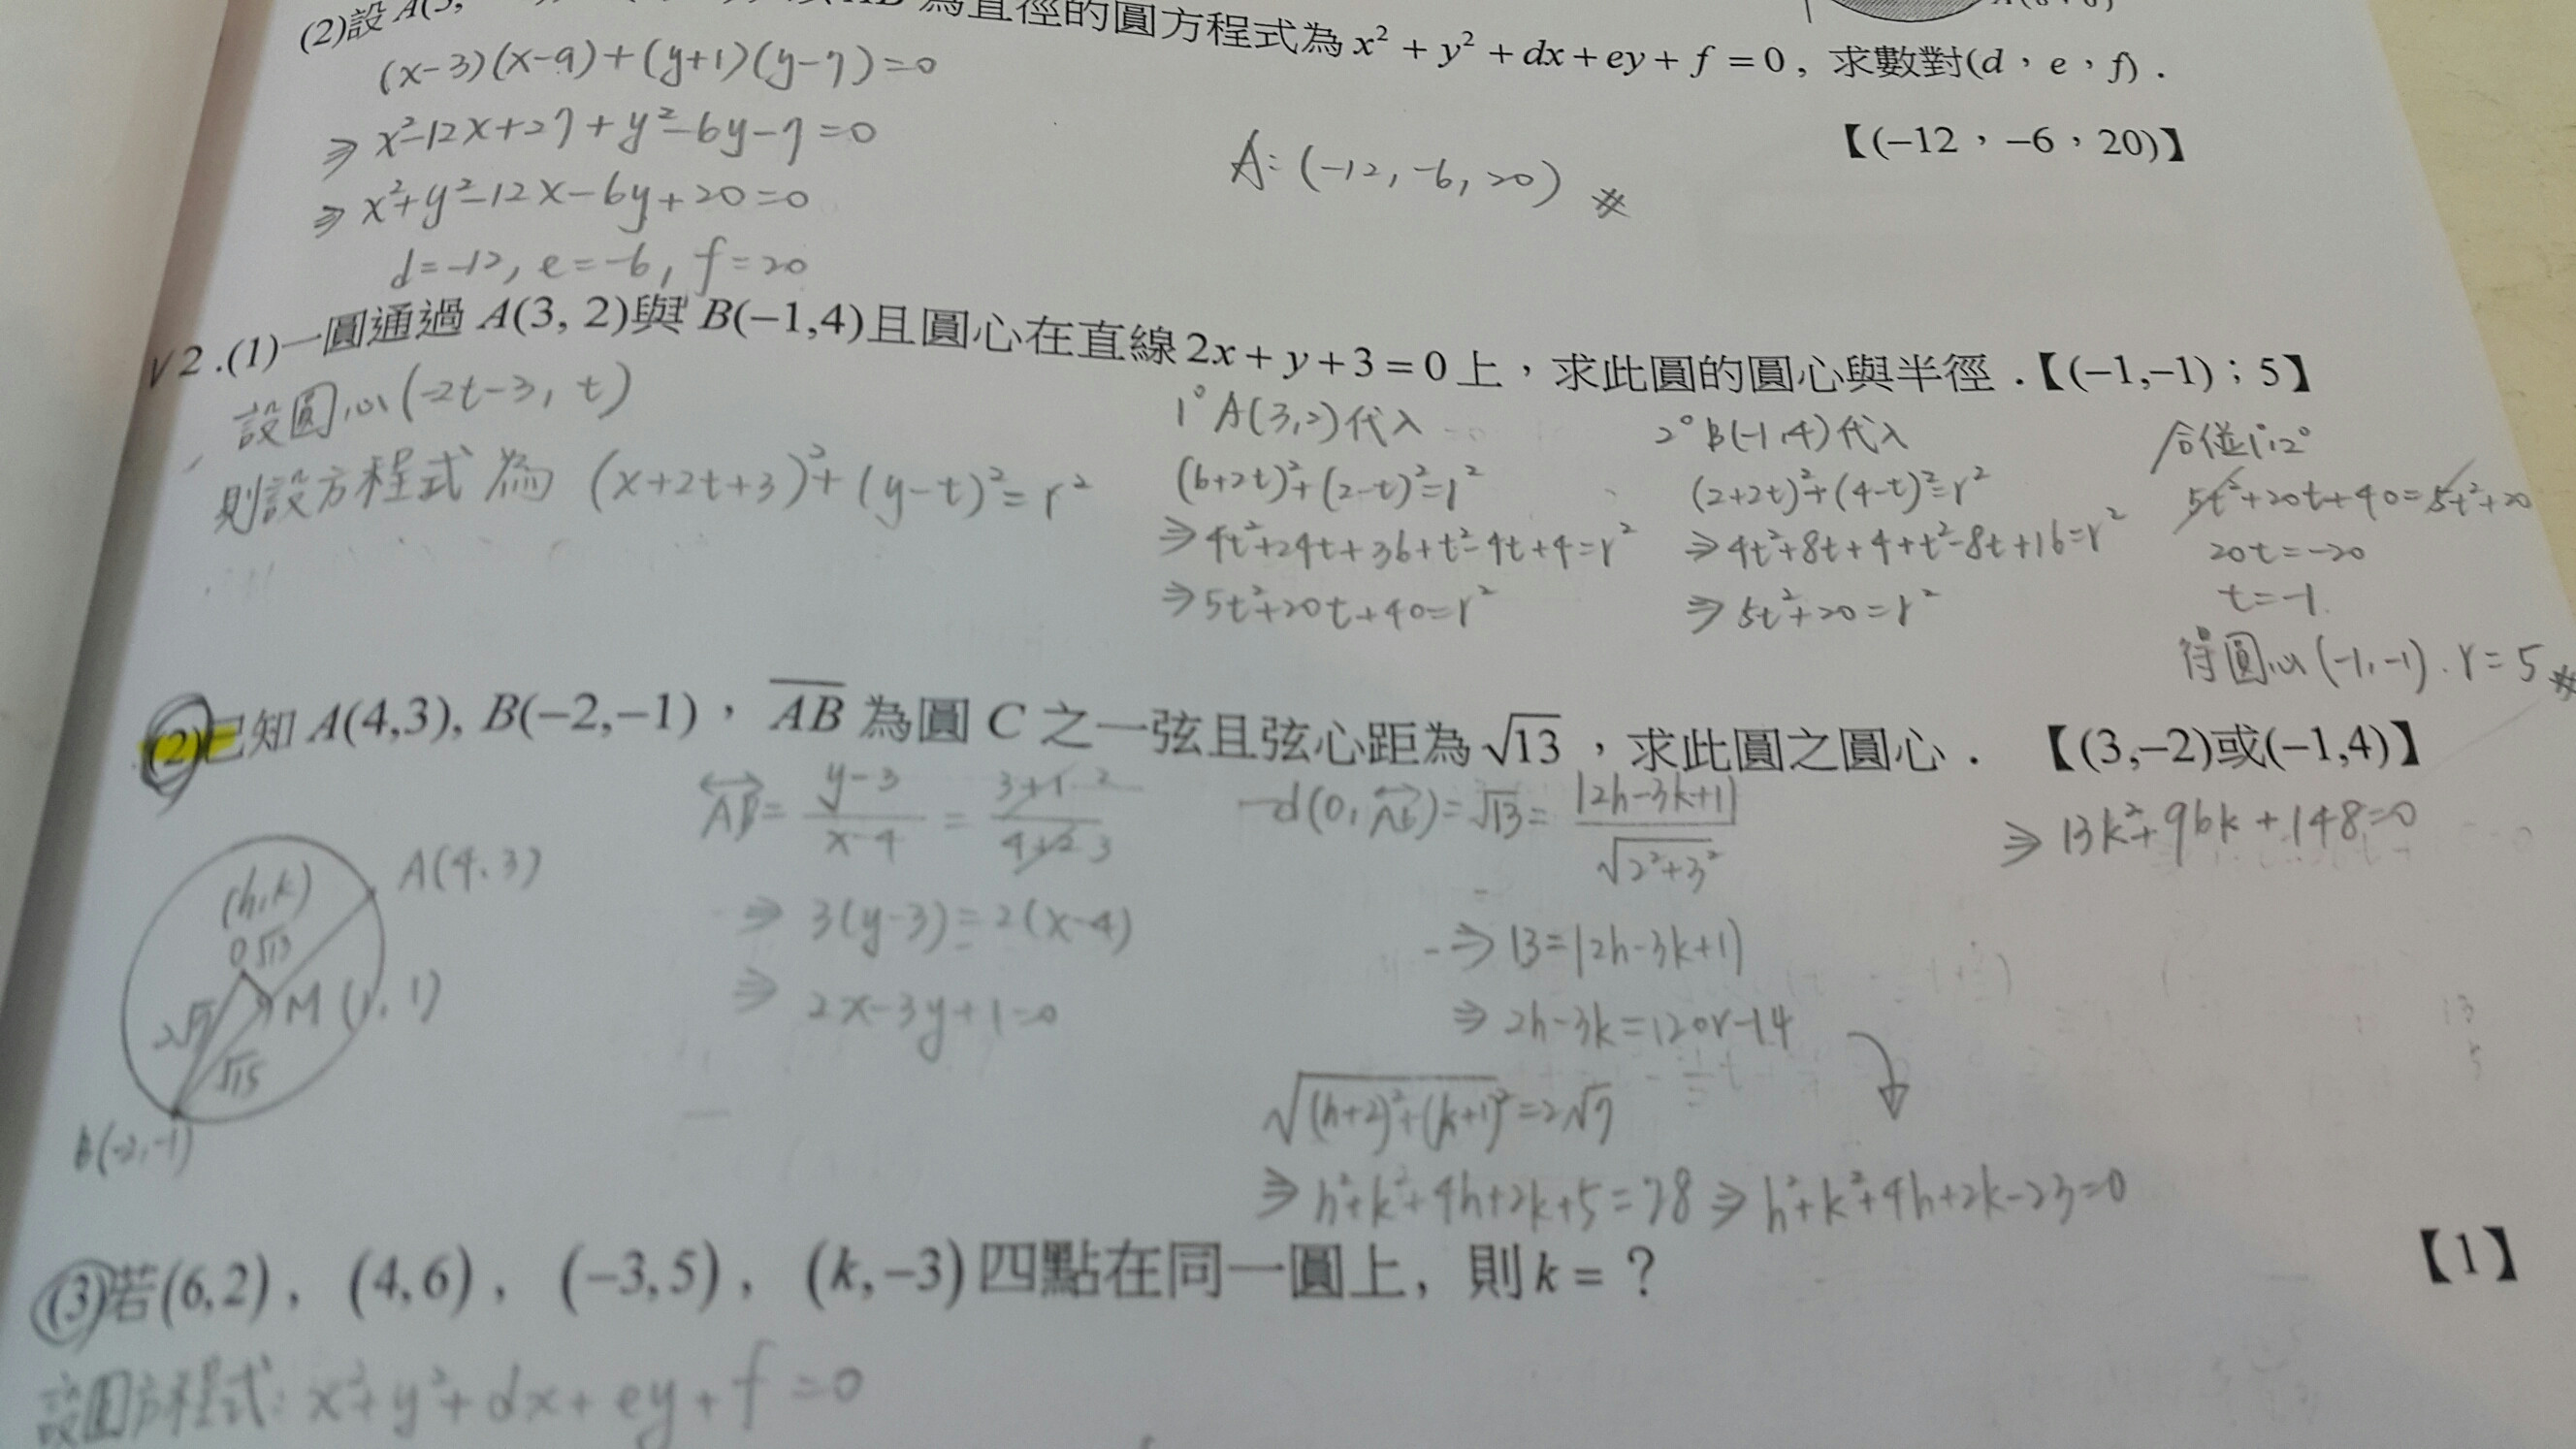 (2)設 A(3, 為直徑的圓方程式為 x² + y² + dx + ey + f = 0, 求數對(d, e, f).
【(-12, -6, 20)】
(x-3)(x-9)+(y+1)(y-7)=0
⇒ x²-12x+27+y²-6y-7=0
⇒ x²+y²-12x-6y+20=0
d=-12, e=-6, f=20
A: (-12, -6, 20) #
✓2.(1)一圓通過 A(3, 2)與 B(-1,4)且圓心在直線 2x + y + 3 = 0 上,求此圓的圓心與半徑.【(-1,-1);5】
設圓心(-2t-3, t)
則設方程式為 (x+2t+3)²+(y-t)²=r²
1° A(3,2)代入
(6+2t)²+(2-t)²=r²
⇒ 4t²+24t+36+t²-4t+4=r²
⇒ 5t²+20t+40=r²
2° B(-1,4)代入
(2+2t)²+(4-t)²=r²
⇒ 4t²+8t+4+t²-8t+16=r²
⇒ 5t²+20=r²
1°,2°
5t²+20t+40=5t²+20
20t=-20
t=-1
得圓心(-1,-1). r=5 #
(2)已知 A(4,3), B(-2,-1), AB 為圓 C 之一弦且弦心距為 √13,求此圓之圓心. 【(3,-2)或(-1,4)】
(h,k)
A(4,3)
O √13
M (1,1)
2√7
√15
B(-2,-1)
AB= (y-3)/(x-4) = (3+1 2)/(4+2 3)
⇒ 3(y-3)=2(x-4)
⇒ 2x-3y+1=0
d(O, AB)=√13= |2h-3k+1|/√(2²+3²)
⇒ 13=|2h-3k+1|
⇒ 2h-3k=12 or -14
√((h+2)²+(k+1)²)=2√7
⇒ h²+k²+4h+2k+5=28 ⇒ h²+k²+4h+2k-23=0
⇒ 13k²+96k+148=0
(3)若(6,2), (4,6), (-3,5), (k,-3)四點在同一圓上, 則 k = ? 【1】
設圓方程式: x²+y²+dx+ey+f=0